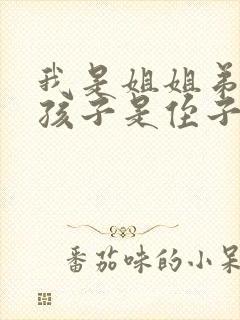 我是姐姐弟
孩子是侄子
番茄味的小呆